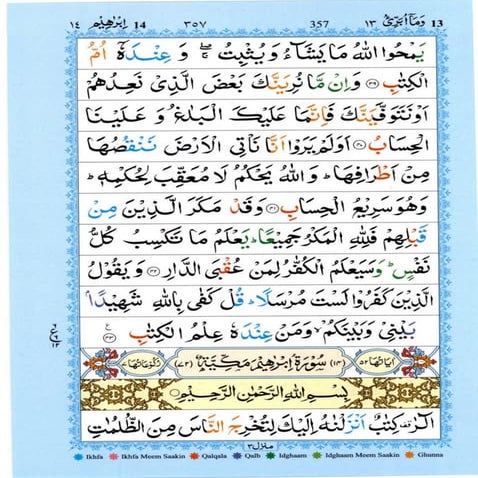 ١٤ اِبْرٰهِيْم 14 ٣٥٧ 357 وَمَآ اُبَرِّئُ ١٣ 13
يَمْحُوا اللّٰهُ مَا يَشَآءُ وَيُثْبِتُ ۖۚ وَ عِنْدَهٗٓ اُمُّ
الْكِتٰبِ ﴿٣٩﴾ وَاِنْ مَّا نُرِيَنَّكَ بَعْضَ الَّذِيْ نَعِدُهُمْ
اَوْ نَتَوَفَّيَنَّكَ فَاِنَّمَا عَلَيْكَ الْبَلٰغُ وَ عَلَيْنَا
الْحِسَابُ ﴿٤٠﴾ اَوَلَمْ يَرَوْا اَنَّا نَاْتِي الْاَرْضَ نَنْقُصُهَا
مِنْ اَطْرَافِهَا ؕ وَاللّٰهُ يَحْكُمُ لَا مُعَقِّبَ لِحُكْمِهٖ ؕ
وَهُوَ سَرِيْعُ الْحِسَابِ ﴿٤١﴾ وَقَدْ مَكَرَ الَّذِيْنَ مِنْ
قَبْلِهِمْ فَلِلّٰهِ الْمَكْرُ جَمِيْعًا ؕ يَعْلَمُ مَا تَكْسِبُ كُلُّ
نَفْسٍ ؕ وَسَيَعْلَمُ الْكُفّٰرُ لِمَنْ عُقْبَى الدَّارِ ﴿٤٢﴾ وَيَقُوْلُ
الَّذِيْنَ كَفَرُوْا لَسْتَ مُرْسَلًا ؕ قُلْ كَفٰى بِاللّٰهِ شَهِيْدًۢا
بَيْنِيْ وَبَيْنَكُمْ ۙ وَمَنْ عِنْدَهٗ عِلْمُ الْكِتٰبِ ﴿٤٣﴾
اٰيَاتُهَا ٥٢ (١٤) سُوْرَةُ اِبْرٰهِيْمَ مَكِّيَّةٌ (٧٢) رُكُوْعَاتُهَا ٧
بِسْمِ اللّٰهِ الرَّحْمٰنِ الرَّحِيْمِ
الٓرٰ ۫ كِتٰبٌ اَنْزَلْنٰهُ اِلَيْكَ لِتُخْرِجَ النَّاسَ مِنَ الظُّلُمٰتِ
منزل ٣
Ikhfa Ikhfa Meem Saakin Qalqala Qalb Idghaam Idghaam Meem Saakin Ghunna